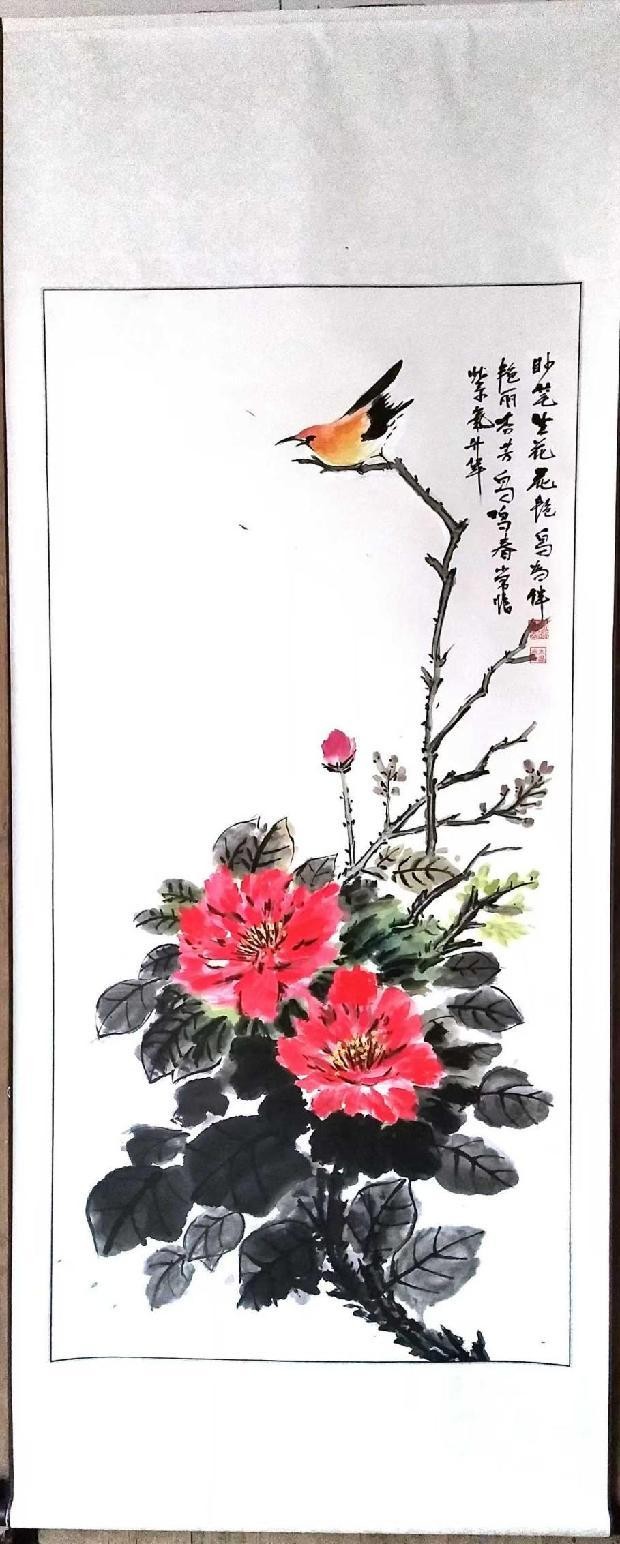 妙笔生花花艳鸟为伴
艳丽杏芳鸟鸣春常恬
紫气升华